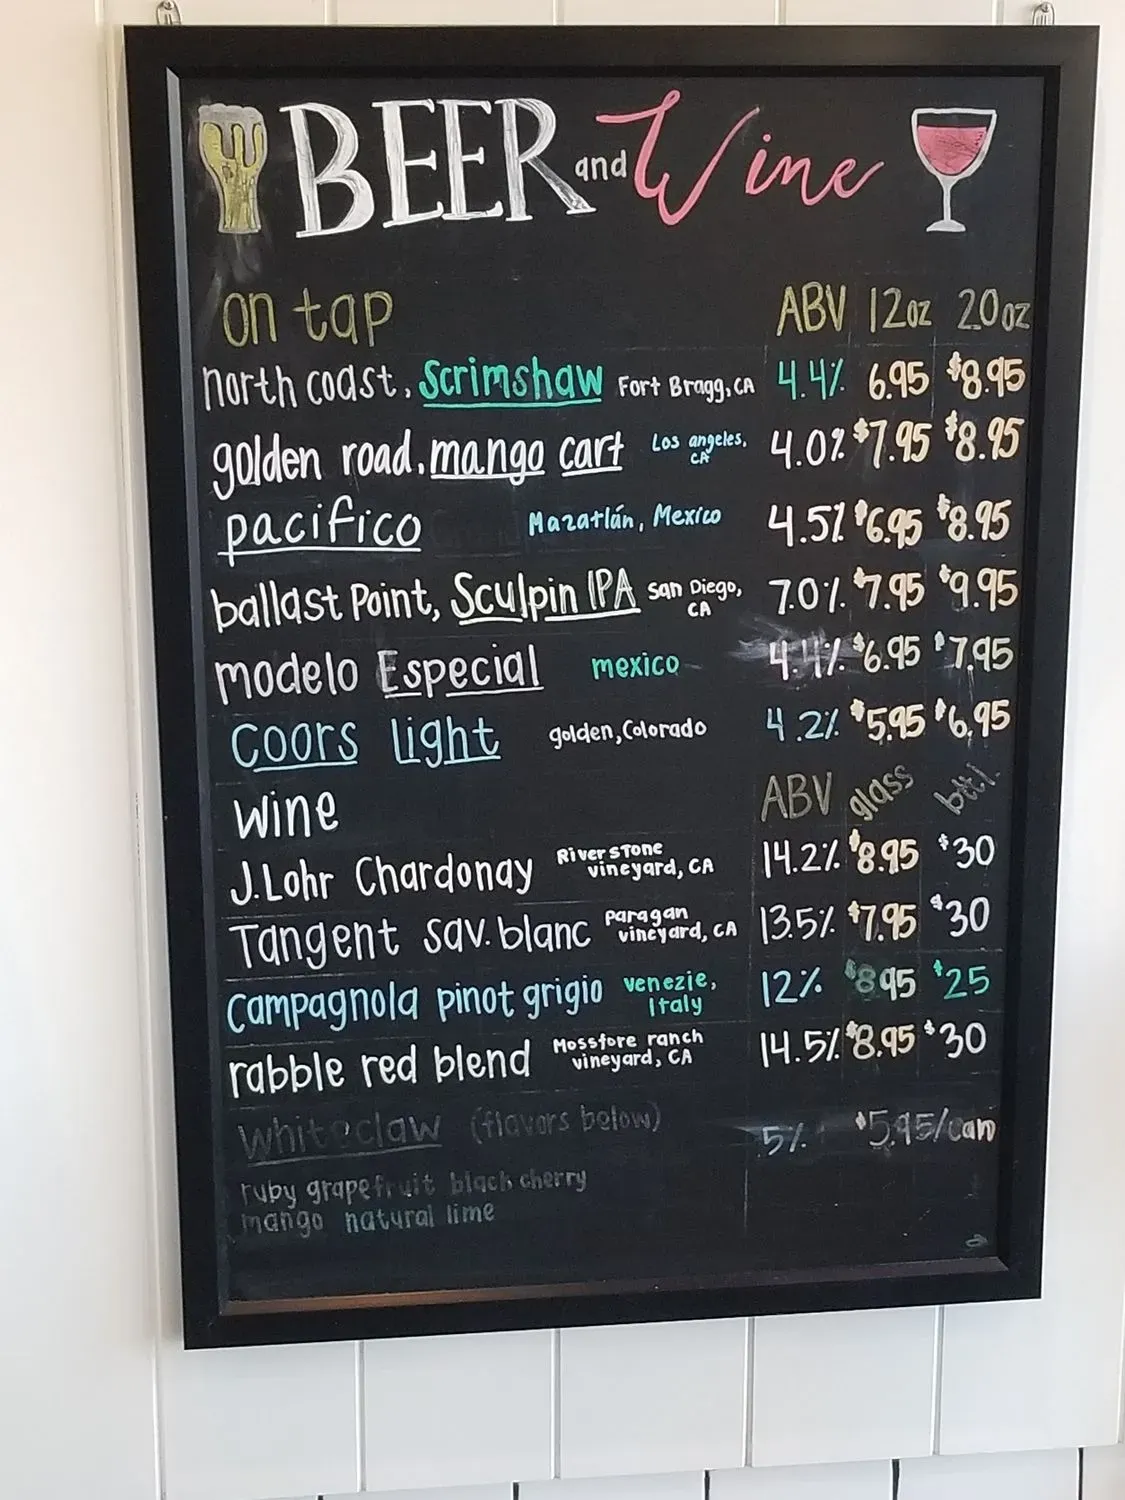 BEER and Wine
on tap ABV 12oz 20oz
north coast, Scrimshaw Fort Bragg, CA 4.4% 6.95 $8.95
golden road, mango cart Los angeles, CA 4.0% $7.95 $8.95
pacifico Mazatlán, Mexico 4.5% $6.95 $8.95
ballast Point, Sculpin IPA San Diego, CA 7.0% $7.95 $9.95
modelo Especial mexico 4.4% $6.95 $7.95
Coors light golden, Colorado 4.2% $5.95 $6.95
wine ABV glass bttl.
J.Lohr Chardonay Riverstone vineyard, CA 14.2% $8.95 $30
Tangent sav. blanc paragan vineyard, CA 13.5% $7.95 $30
Campagnola pinot grigio venezie, Italy 12% $8.95 $25
rabble red blend Mossfore ranch vineyard, CA 14.5% $8.95 $30
whiteclaw (flavors below) 5% $5.95/can
ruby grapefruit black cherry
mango natural lime